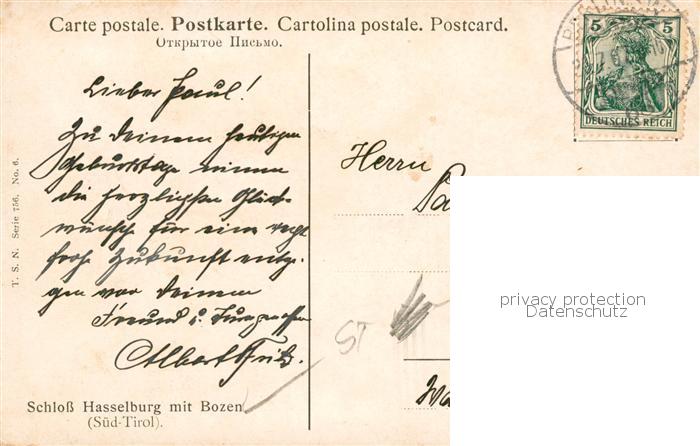 Carte postale. Postkarte. Cartolina postale. Postcard.
Открытое Письмо.
5 5
DEUTSCHES REICH
Lieber Paul!
Zu Deinem heutigen
Geburtstage nimm
die herzlichsten Glück-
wünsche für eine recht
frohe Zukunft entge-
gen von Deinem
Freund u.
Albert Fritz.
Herrn
T. S. N. Serie 756. No. 6.
ST
privacy protection
Datenschutz
Schloß Hasselburg mit Bozen
(Süd-Tirol).